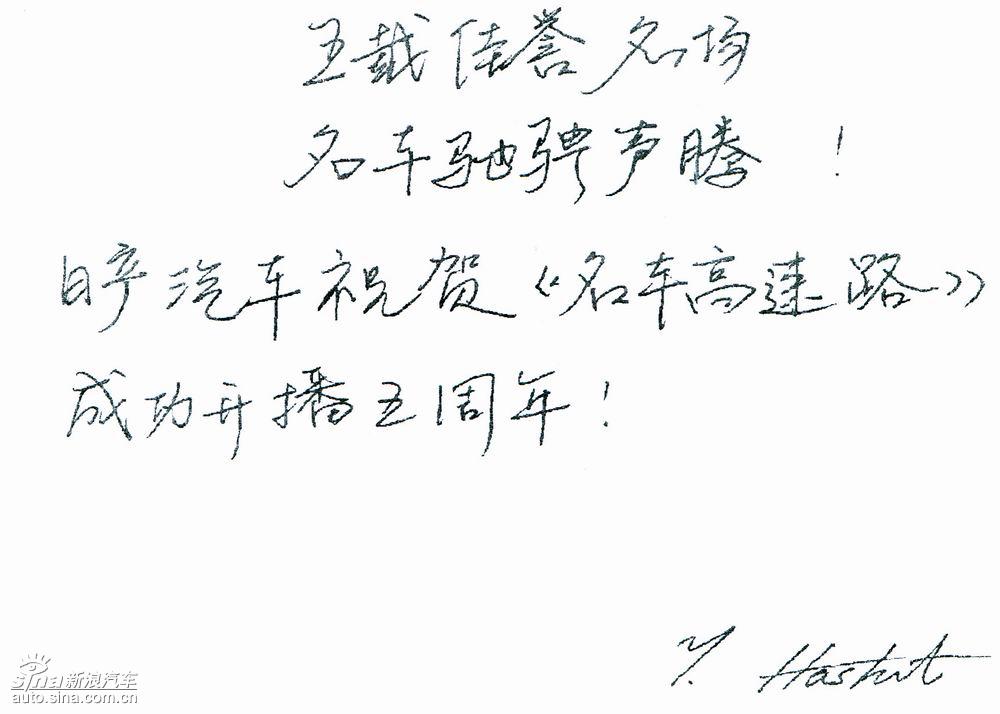 五载佳誉名扬
名车驰骋声腾!
日产汽车祝贺《名车高速路》
成功开播五周年!
Y.
sina新浪汽车
auto.sina.com.cn